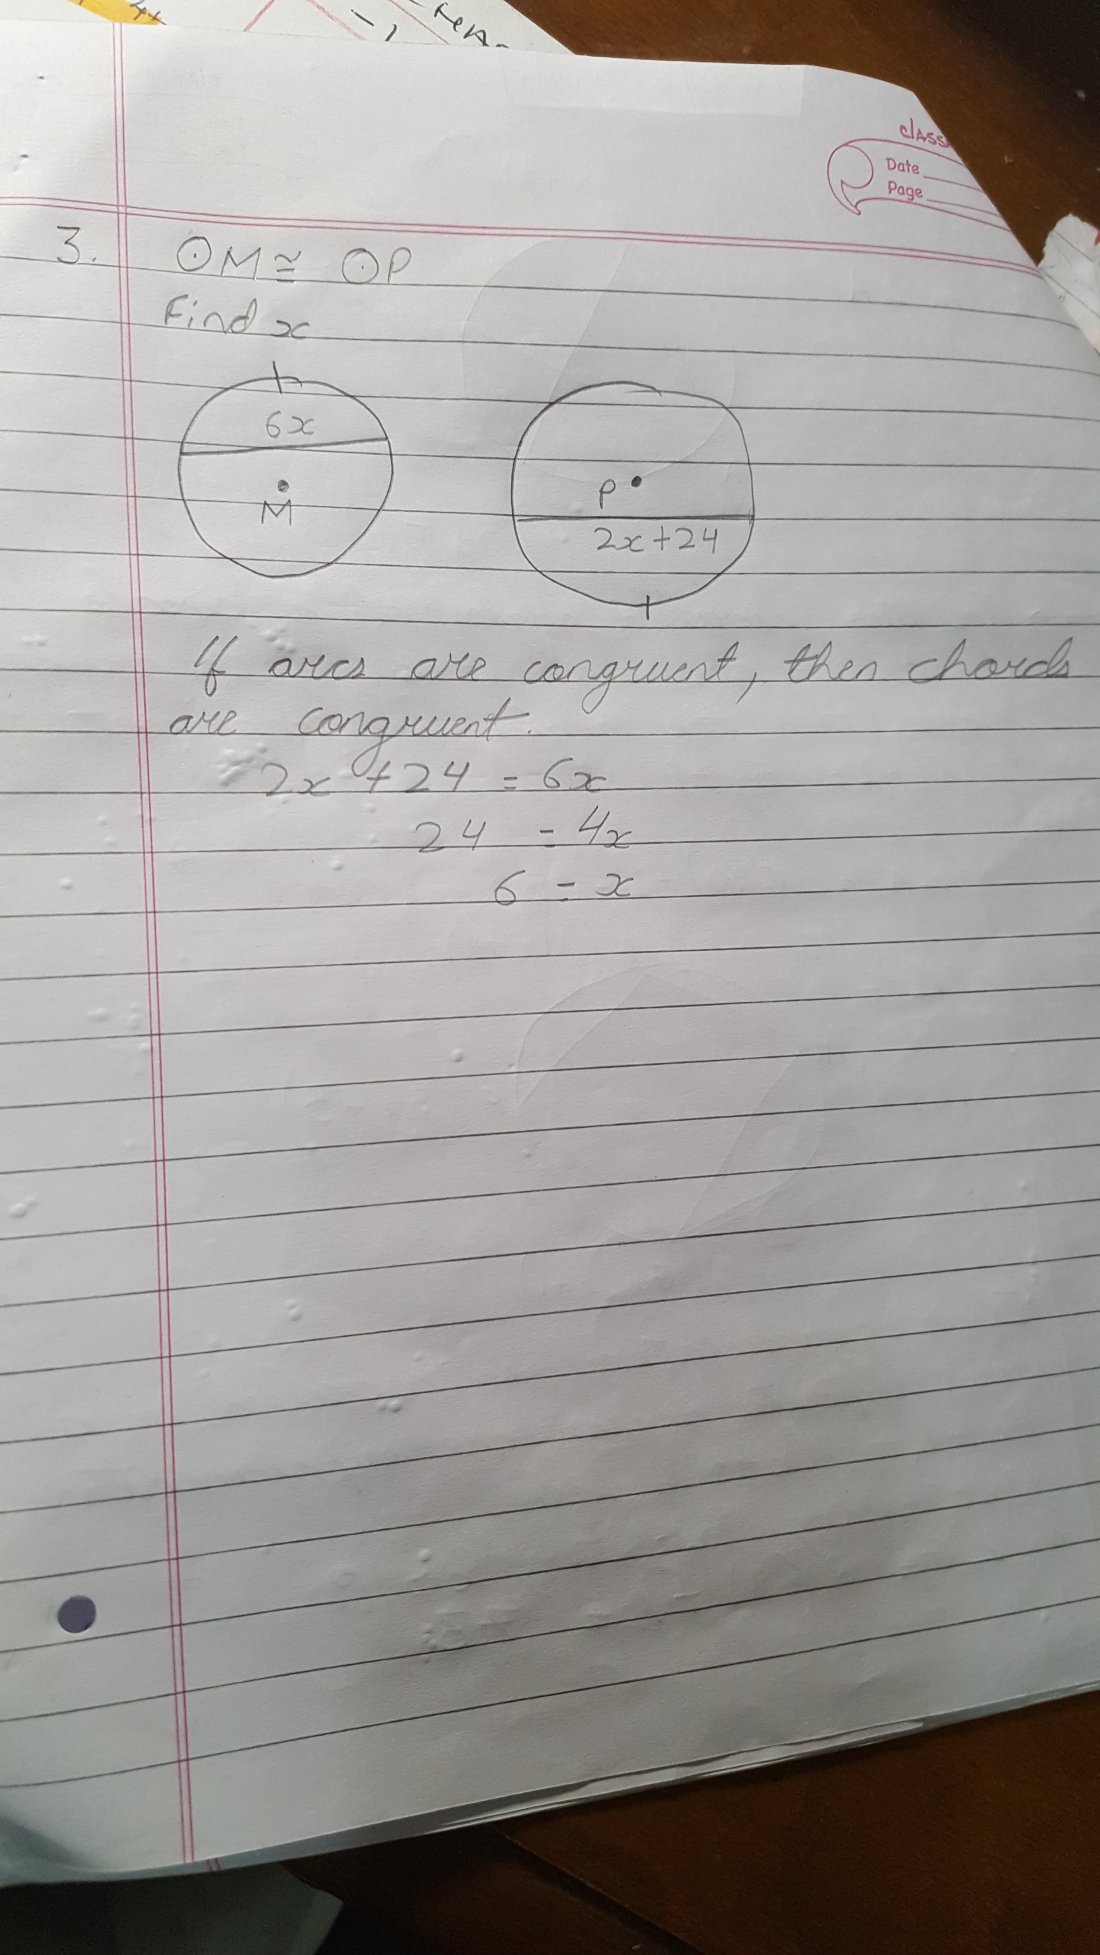 class
Date
Page
3. ⊙M ≅ ⊙P
Find x
6x
M
P
2x+24
If arcs are congruent, then chords
are congruent.
2x + 24 = 6x
24 = 4x
6 = x